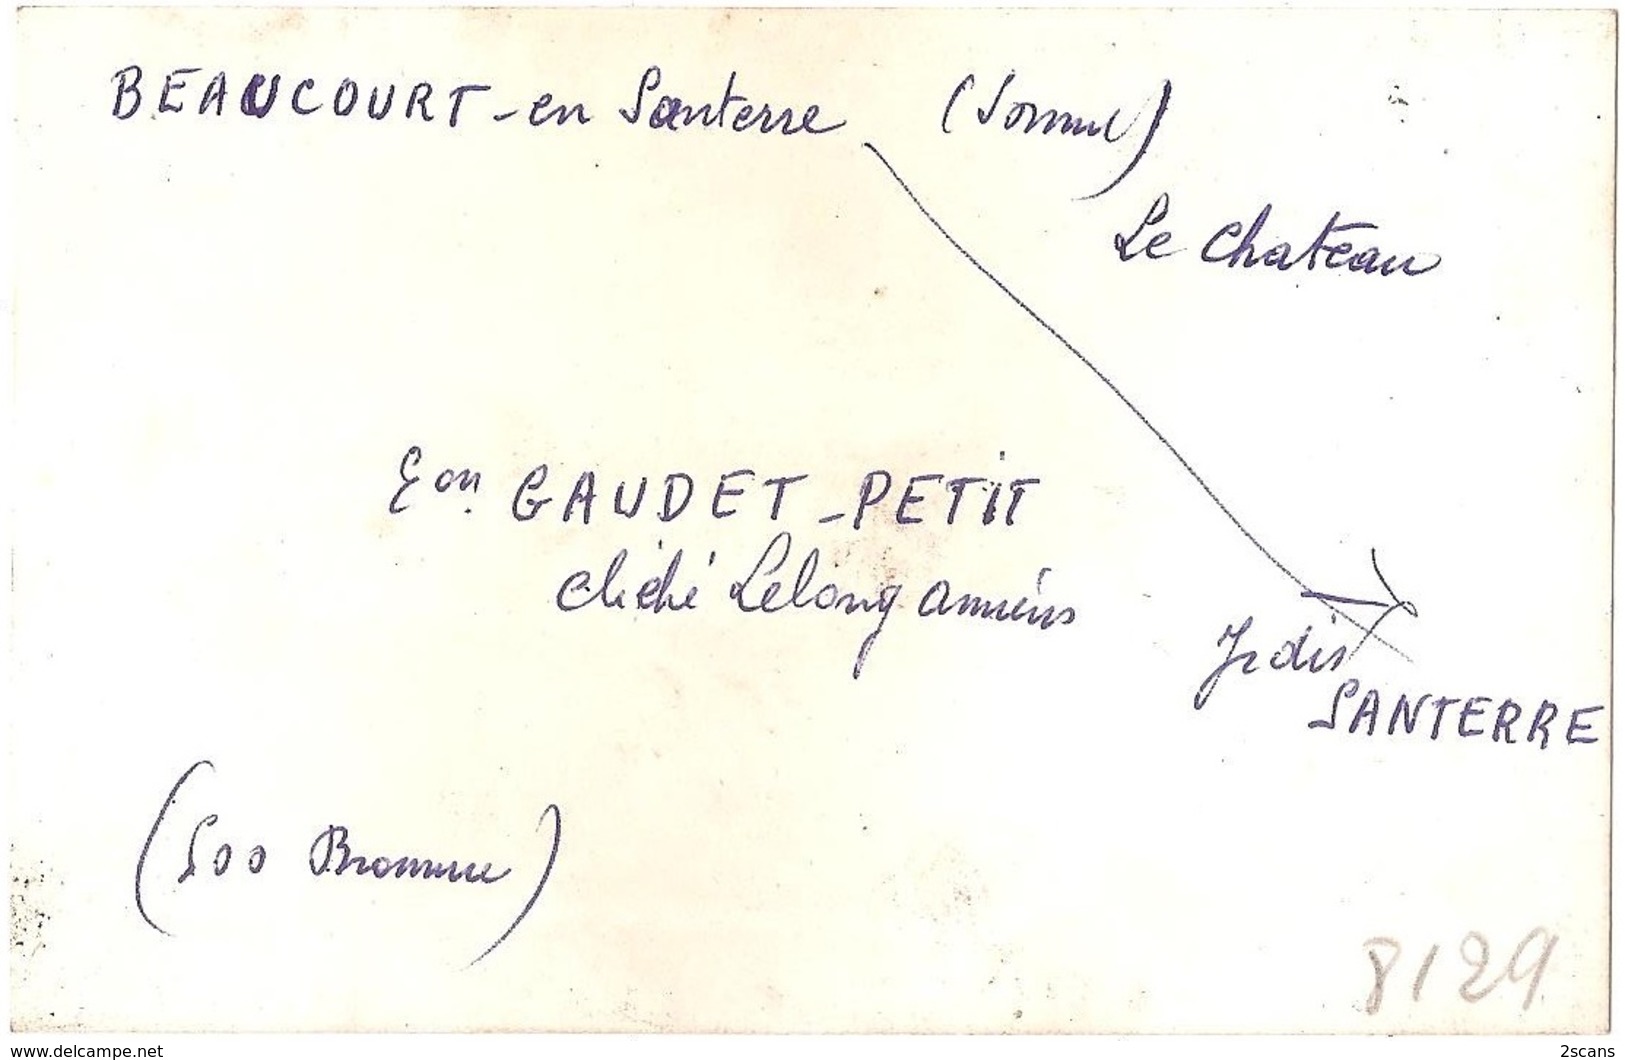 BEAUCOURT - en Santerre (Somme)
Le Chateau
Eon GAUDET - PETIT
cliché Lelong amiens
SANTERRE
(500 Bromure)
8129
www.delcampe.net
2scans